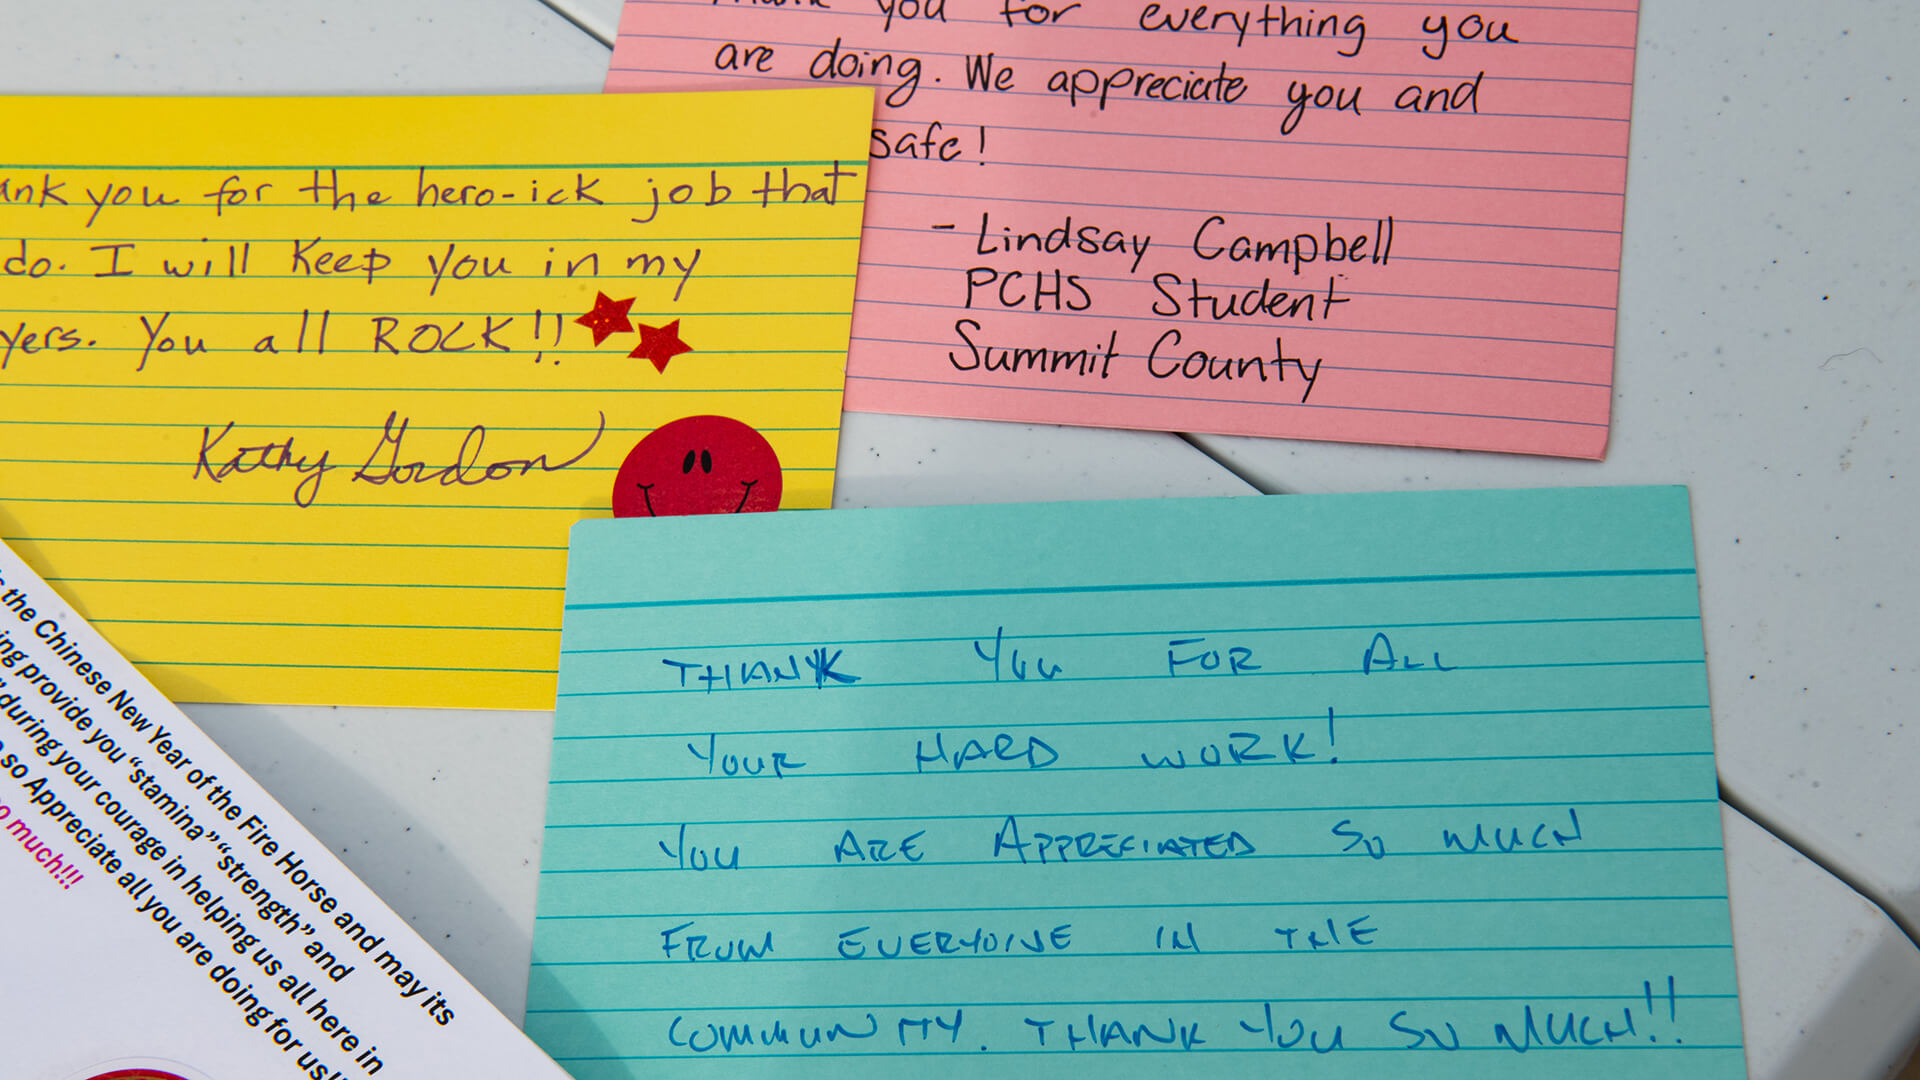 you for everything you
are doing. We appreciate you and
safe!
- Lindsay Campbell
PCHS Student
Summit County
you for the hero-ick job that
do. I will keep you in my
You all ROCK!!
Kathy Gordon
THANK YOU FOR ALL
YOUR HARD WORK!
YOU ARE APPRECIATED SO MUCH
FROM EVERYONE IN THE
COMMUNITY. THANK YOU SO MUCH!!
the Chinese New Year of the Fire Horse and may its
provide you “stamina” “strength” and
during your courage in helping us all here in
so Appreciate all you are doing for us!!
much!!!